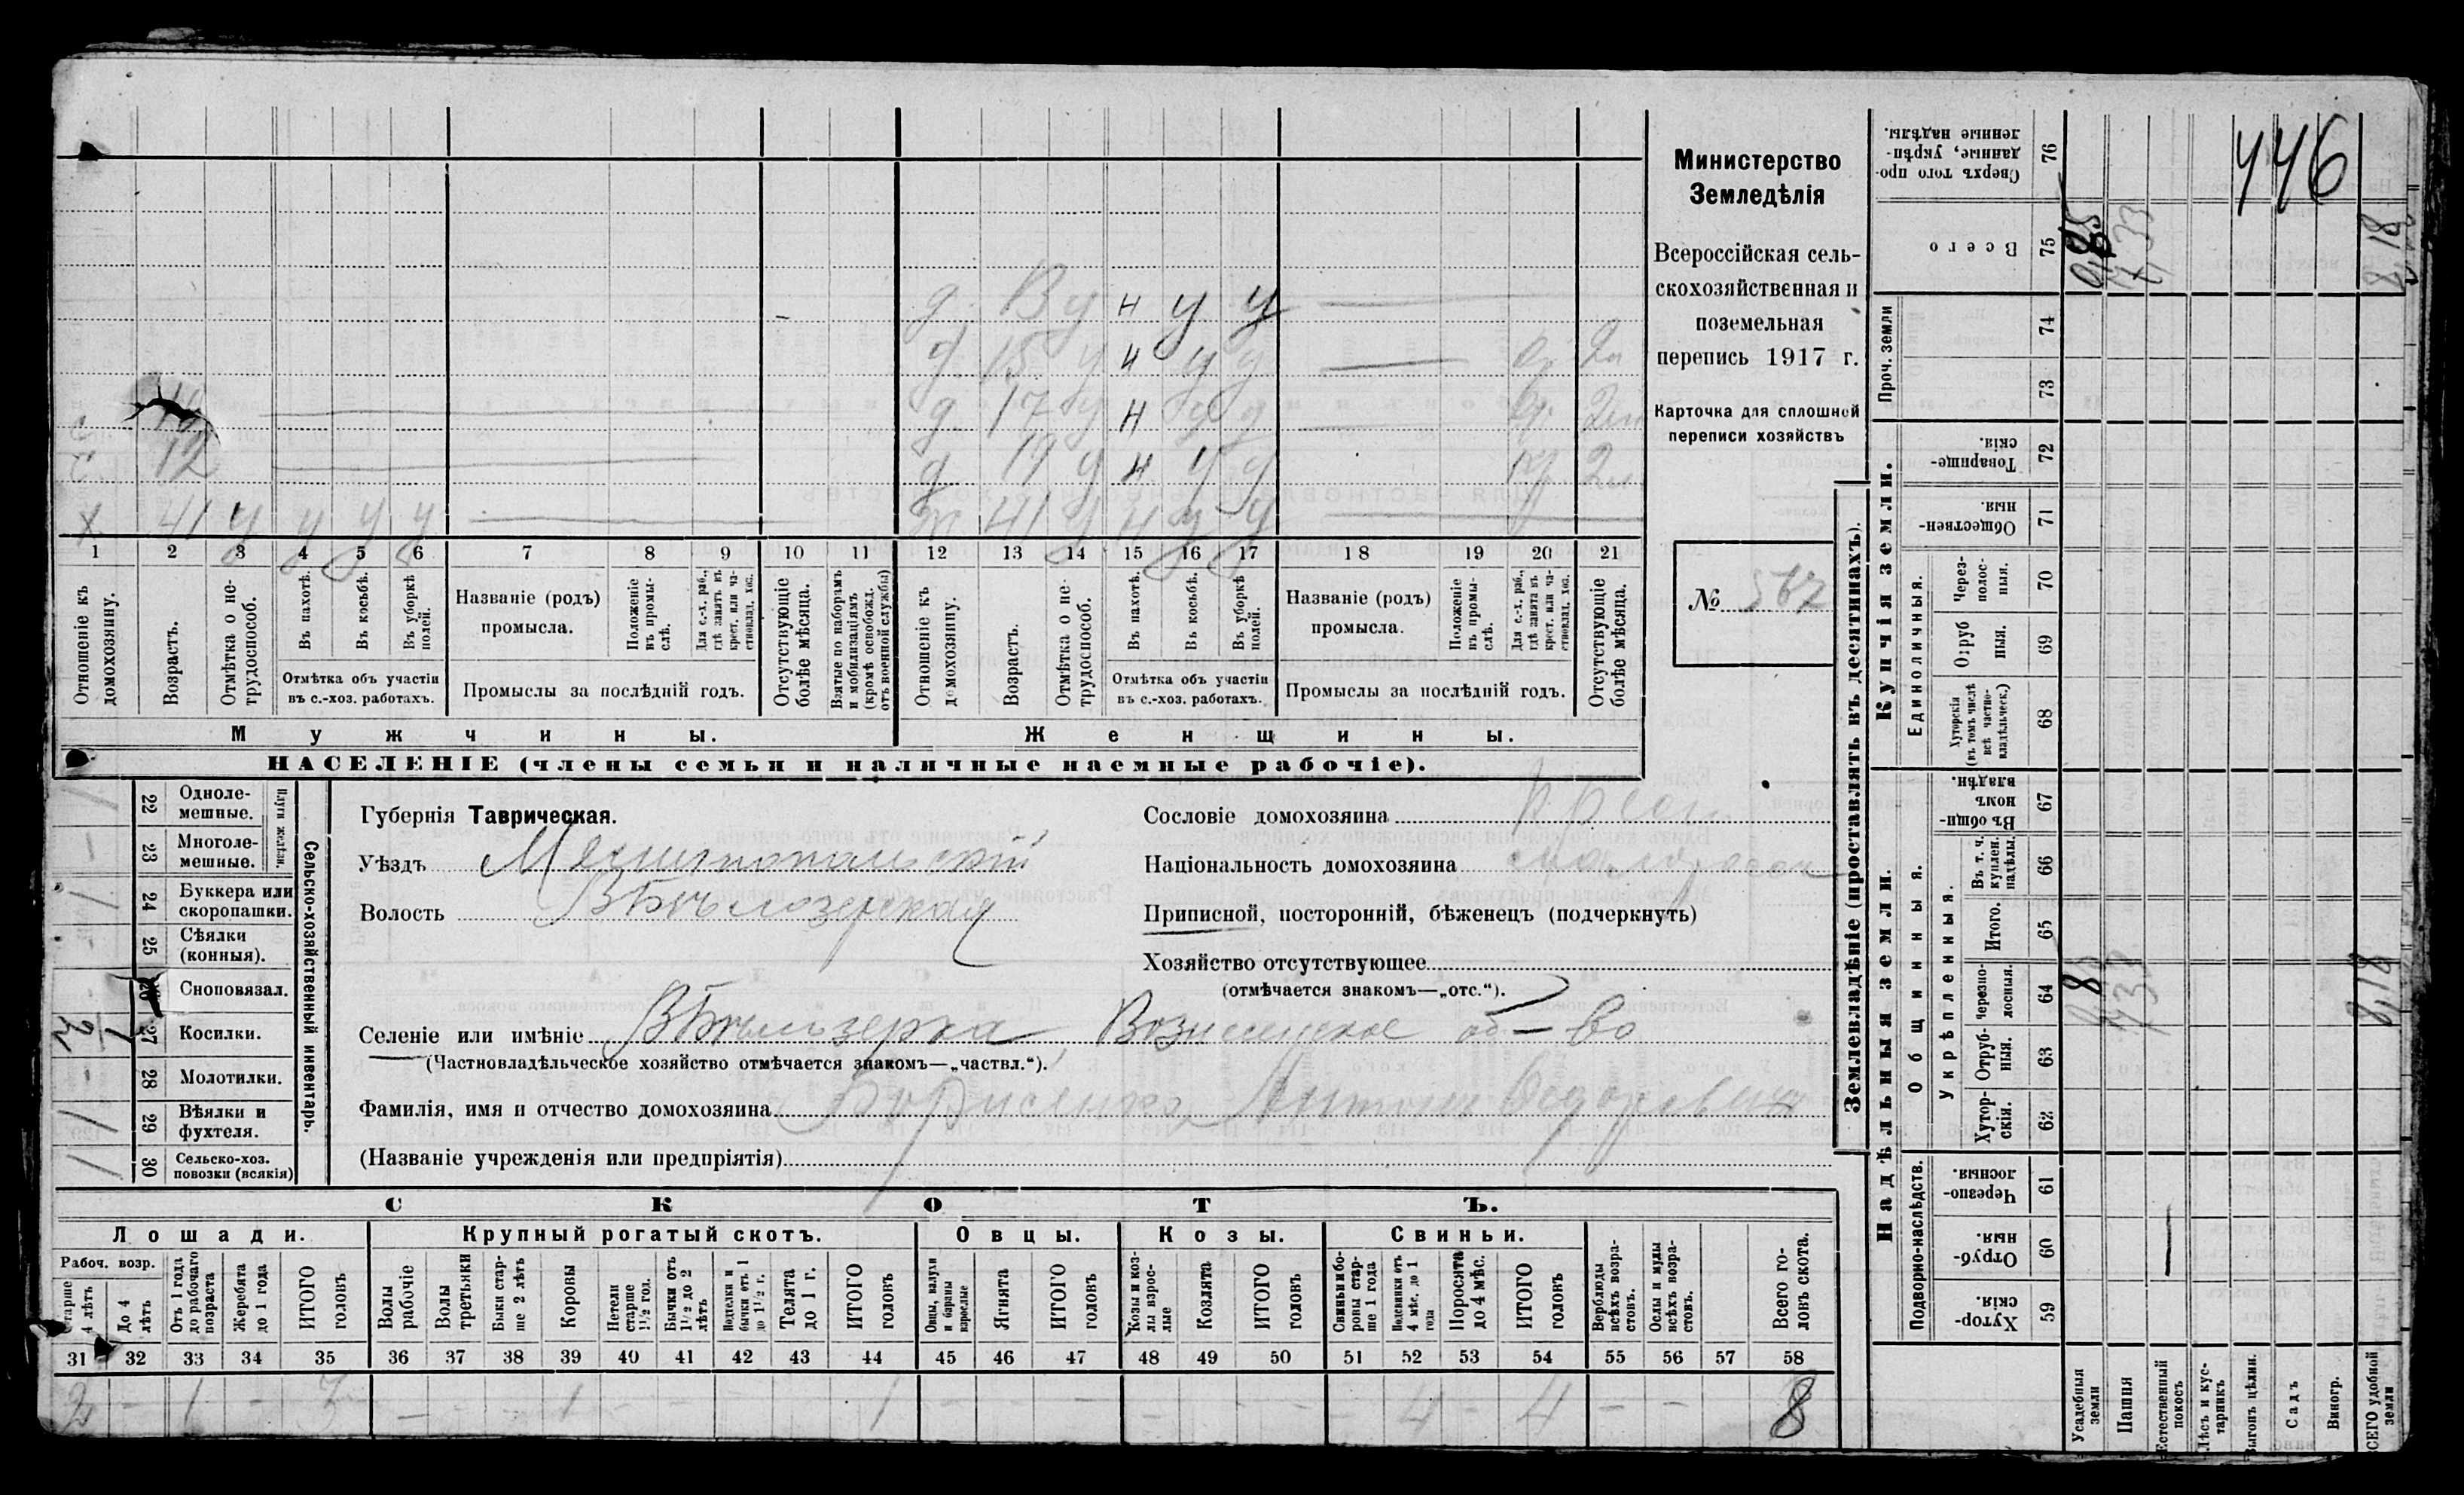 446
Министерство
Земледѣлія
Всероссійская сель-
скохозяйственная и
поземельная
перепись 1917 г.
Карточка для сплошной
переписи хозяйствъ
№ 567
у н у у
д. 15 у н у у 2
д. 17 у н у у 2
12 д. 19 у н у у 2
х 41 у у у у 41 у н у у
1 2 3 4 5 6 7 8 9 10 11 12 13 14 15 16 17 18 19 20 21
Отношеніе къ домохозяину.
Возрастъ.
Отмѣтка о не-трудоспособ.
Въ пахотѣ.
Въ косьбѣ.
Въ уборкѣ полей.
Отмѣтка объ участіи
въ с.-хоз. работахъ.
Названіе (родъ)
промысла.
Положеніе въ промы-слѣ.
Для с.-х. раб., гдѣ занятъ въ крест. или ча-стновлад. хоз.
Промыслы за послѣдній годъ.
Отсутствующіе болѣе мѣсяца.
Взятые по наборамъ и мобилизаціямъ (кромѣ освобожд. отъ военной службы)
Отношеніе къ домохозяину.
Возрастъ.
Отмѣтка о не-трудоспособ.
Въ пахотѣ.
Въ косьбѣ.
Въ уборкѣ полей.
Отмѣтка объ участіи
въ с.-хоз. работахъ.
Названіе (родъ)
промысла.
Положеніе въ промы-слѣ.
Для с.-х. раб., гдѣ занята въ крест. или ча-стновлад. хоз.
Промыслы за послѣдній годъ.
Отсутствующіе болѣе мѣсяца.
Мужчины.
Женщины.
НАСЕЛЕНІЕ (члены семьи и наличные наемные рабочіе).
Сельско-хозяйственный инвентарь.
Плуги желѣзн.
22 Одноле-мешные.
23 Многоле-мешные.
24 Буккера или скоропашки.
25 Сѣялки (конныя).
26 Сноповязал.
27 Косилки.
28 Молотилки.
29 Вѣялки и фухтеля.
30 Сельско-хоз. повозки (всякія)
Губернія Таврическая.
Уѣздъ Мелитопольскій
Волость Бѣлозерская
Селеніе или имѣніе Бѣлозерка, Вознесенское об-во
(Частновладѣльческое хозяйство отмѣчается знакомъ—„частвл.“).
Фамилія, имя и отчество домохозяина Борисенко Антонъ Федоровичъ
(Названіе учрежденія или предпріятія)
Сословіе домохозяина
Національность домохозяина малоросс
Приписной, посторонній, бѣженецъ (подчеркнуть)
Хозяйство отсутствующее
(отмѣчается знакомъ—„отс.“).
СКОТЪ.
Лошади.
Рабоч. возр.
Старше 4 лѣтъ
До 4 лѣтъ
Отъ 1 года до рабочаго возраста
Жеребята до 1 года
ИТОГО головъ
Крупный рогатый скотъ.
Волы рабочіе
Волы третьяки
Быки стар-ше 2 лѣтъ
Коровы
Нетели старше 1½ год.
Бычки отъ 1½ до 2 лѣтъ
Подтелки и бычки отъ 1 до 1½ г.
Телята до 1 г.
ИТОГО головъ
Овцы.
Овцы, валухи и бараны взрослые
Ягнята
ИТОГО головъ
Козы.
Козы и коз-лы взрос-лые
Козлята
ИТОГО головъ
Свиньи.
Свиньи и бо-ровы стар-ше 1 года
Подсвинки отъ 4 мѣс. до 1 года
Поросята до 4 мѣс.
ИТОГО головъ
Верблюды всѣхъ возра-стовъ.
Ослы и мулы всѣхъ возра-стовъ.
Всего го-ловъ скота.
31 32 33 34 35 36 37 38 39 40 41 42 43 44 45 46 47 48 49 50 51 52 53 54 55 56 57 58
2 - 1 - 3 - - - 1 - 1 - - - - - - 4 - 4 - - 8
Землевладѣніе (проставлять въ десятинахъ).
Купчія земли.
Надѣльныя земли.
Проч. земли
Единоличныя.
Общинныя.
Укрѣпленныя.
Подворно-наслѣдств.
76 Сверхъ того про-данные, укрѣп-ленные надѣлы.
75 Всего
74
73
72 Товарище-скія.
71 Обществен-ныя.
70 Через-полос-ныя.
69 Отруб ныя.
68 Хуторскія (въ томъ числѣ всѣ частно-владѣльческ.)
67 Въ общи-номъ владѣн.
66 Въ т. ч. куплен. надѣлы.
65 Итого.
64 Черезпо-лосныя.
63 Отруб-ныя.
62 Хутор-скія.
61 Черезпо-лосныя.
60 Отруб-ныя.
59 Хутор-скія.
Усадебныя земли
Пашня
Естественный покосъ
Лѣсъ и кус-тарникъ
Выгонъ цѣлин.
Садъ
Виногр.
ВСЕГО удобной земли
0,85
7,33
8,18
7,33
8,18